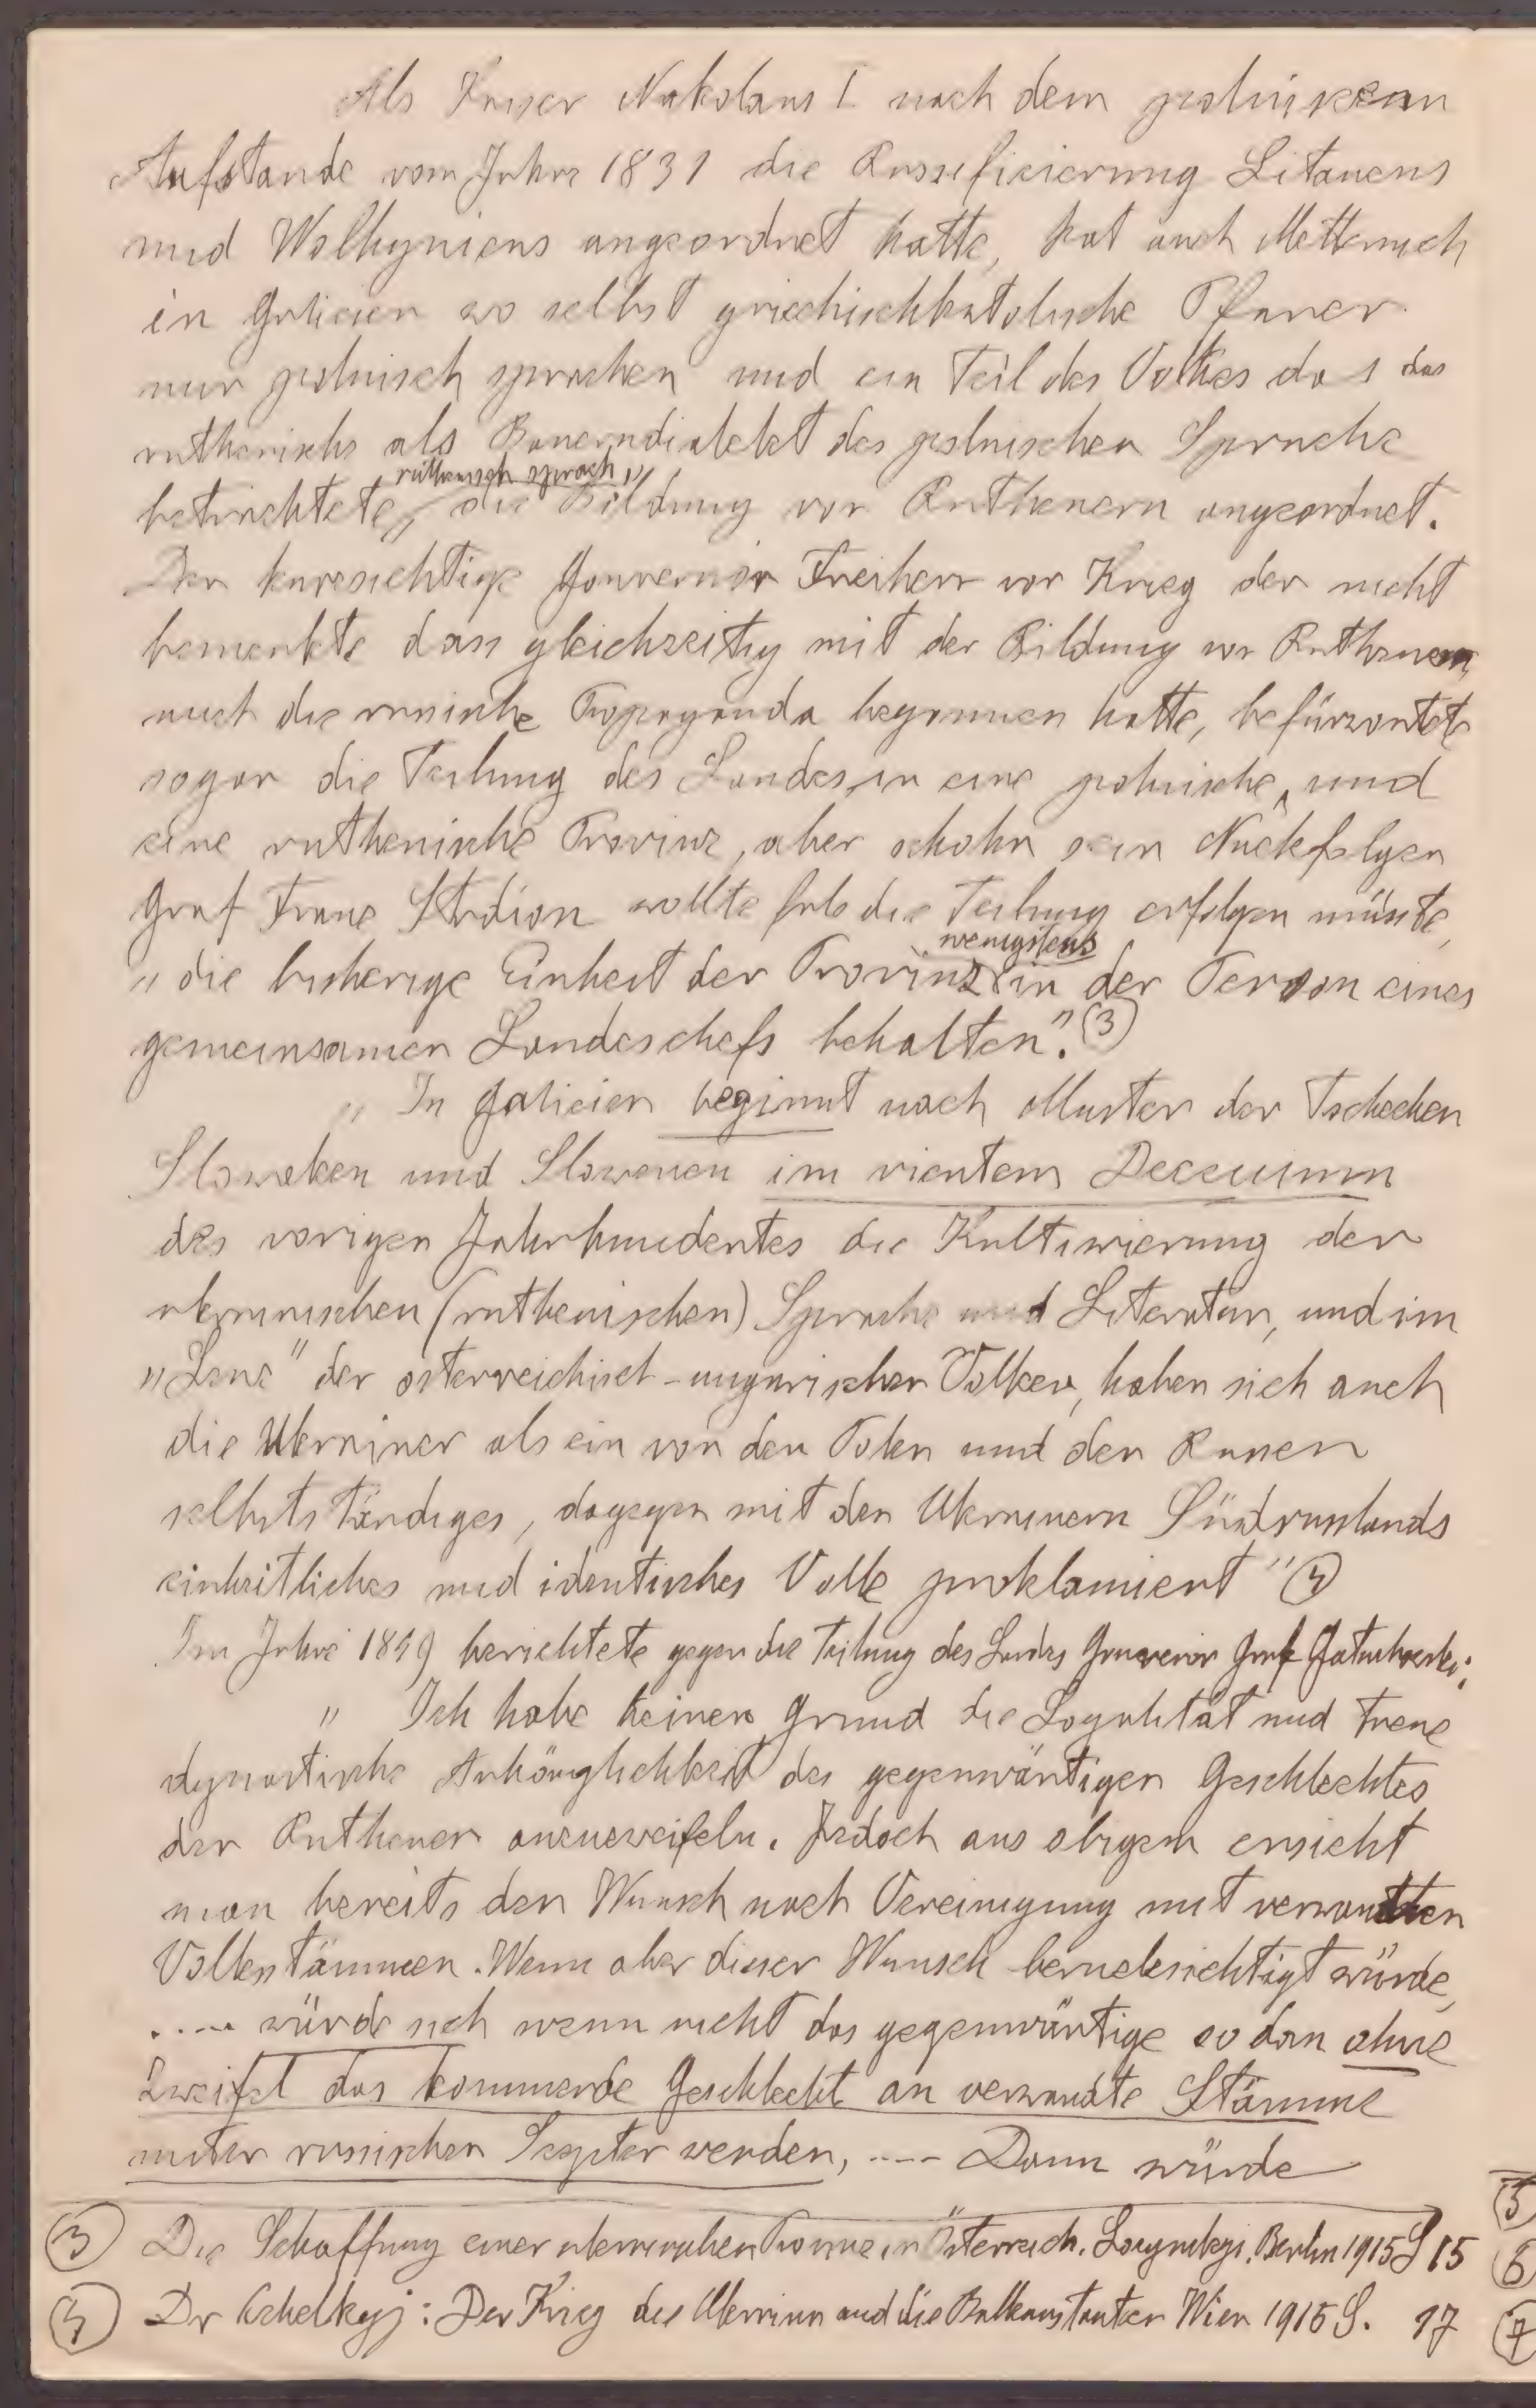 Als Kaiser Nikolaus I nach dem polnischen
Aufstande vom Jahre 1831 die Russifizierung Litauens
und Wolhyniens angeordnet hatte, hat auch Metternich
in Galicien wo selbst griechischkatolische Pfarrer
nur polnisch sprachen und ein Teil des Volkes das das
ruthenische als Bauerndialekt des polnischen Sprache
ruthenisch sprach,"
betrachtete, die Bildung von Ruthenern angeordnet.
Der kurzsichtige Gouvernör Freiherr von Krieg der nicht
bemerkte dass gleichzeitig mit der Bildung von Ruthenern
auch die russische Propaganda begonnen hatte, befürwortete
sogar die Teilung des Landes in eine polnische und
eine ruthenische Provinz, aber schohn sein Nachfolger
Graf Franz Stadion wollte fals die Teilung erfolgen müsste,
wenigstens
„die bisherige Einheit der Provinz in der Person eines
gemeinsamen Landeschefs behalten". (3)
„In Galicien beginnt nach Muster der Tschechen
Slowaken und Slowenen im vierten Decennium
des vorigen Jahrhundertes die Kultiwierung der
ukrainischen (ruthenischen) Sprache und Literatur, und im
„Lenz" der österreichisch-ungarischen Völker, haben sich auch
die Ukrainer als ein von den Polen und den Russen
selbstständiges, dagegen mit den Ukrainern Südrusslands
einheitliches und identisches Volk proklamiert" (4)
Im Jahre 1849 berichtete gegen die Teilung des Landes Gouvernör Graf Gołuchowski:
„Ich habe keinen Grund die Loyalität und treue
dynastische Anhänglichkeit des gegenwärtigen Geschlechtes
der Ruthener anzuzweifeln. Jedoch aus obigem ersieht
man bereits den Wunsch nach Vereinigung mit verwandten
Volksstämmen. Wenn aber dieser Wunsch berucksichtigt würde,
.... würde sich wenn nicht das gegenwärtige so dan ohne
Zweifel das kommende Geschlecht an verwandte Stämme
unter russischen Szepter wenden, .... Dann würde
(3) Die Schaffung einer ukrainischen Provinz in Österreich. Berlin 1915 S 15
(4) Dr : Der Krieg die Ukraina und die Balkanstaaten Wien 1915 S. 17
(5)
(6)
(7)